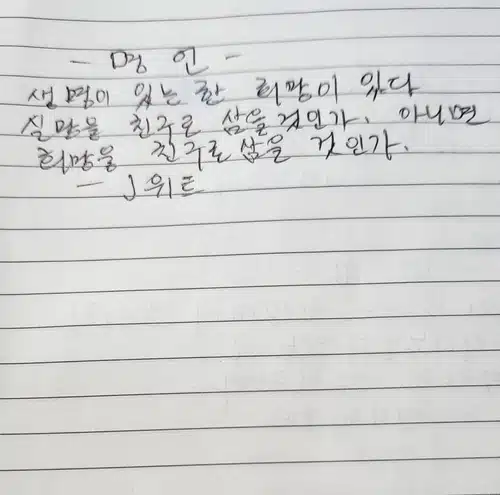 -명 언 -
생명이 있는 한 희망이 있다
실망을 친구로 삼을것인가. 아니면
희망을 친구로 삼을 것인가.
- J 위트